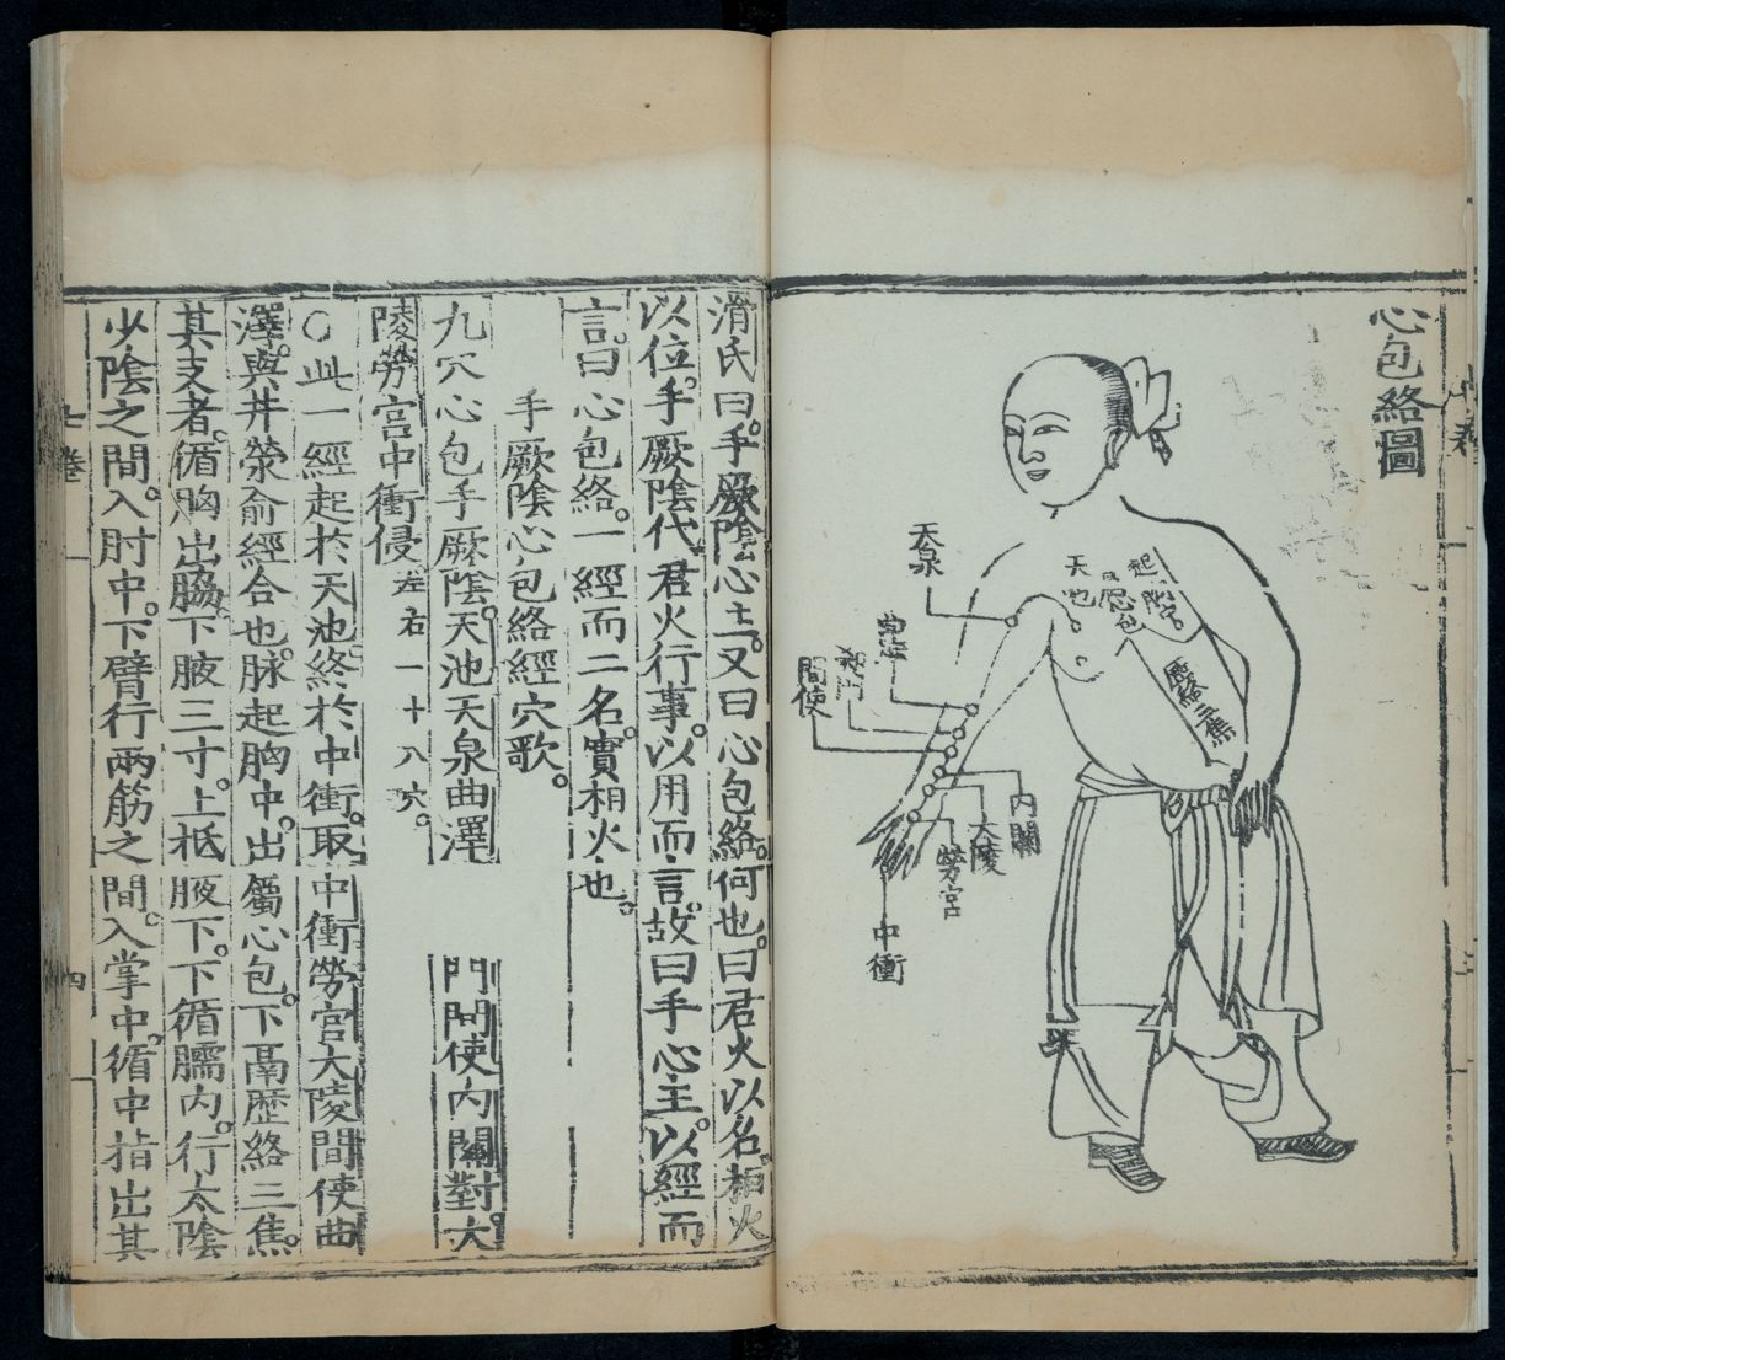 心包絡圖
起
天池
天泉
曲澤
郄門
間使
內關
大陵
勞宮
中衝
歷絡三焦
滑氏曰。手厥陰心主。又曰心包絡。何也。曰君火以名。相火
以位。手厥陰代君火行事。以用而言。故曰手心主。以經而
言。曰心包絡。一經而二名。實相火也。
手厥陰心包絡經穴歌。
九穴心包手厥陰。天池天泉曲澤 門間使內關對。大
陵勞宮中衝侵左右一十八穴。
○此一經起於天池。終於中衝。取中衝勞宮大陵間使曲
澤。與井滎俞經合也。脉起胸中。出屬心包。下鬲歷絡三焦。
其支者。循胸出脇。下腋三寸。上抵腋下。下循臑內。行太陰
少陰之間。入肘中。下臂行兩筋之間。入掌中。循中指出其
七卷
四